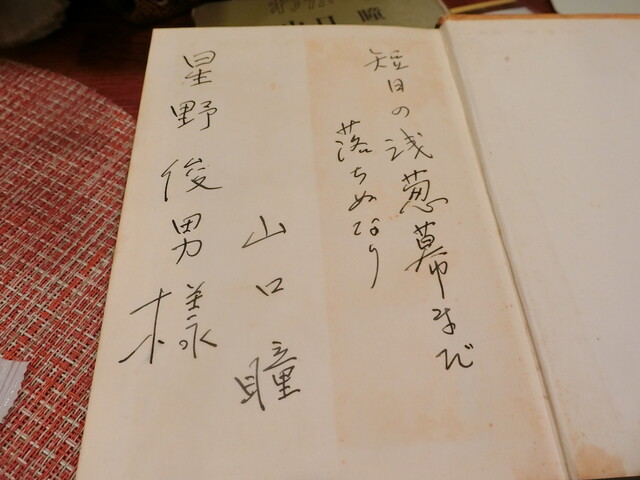 山口 瞳
短日の浅葱幕まだ
落ちぬなり
山口瞳
星野俊男様